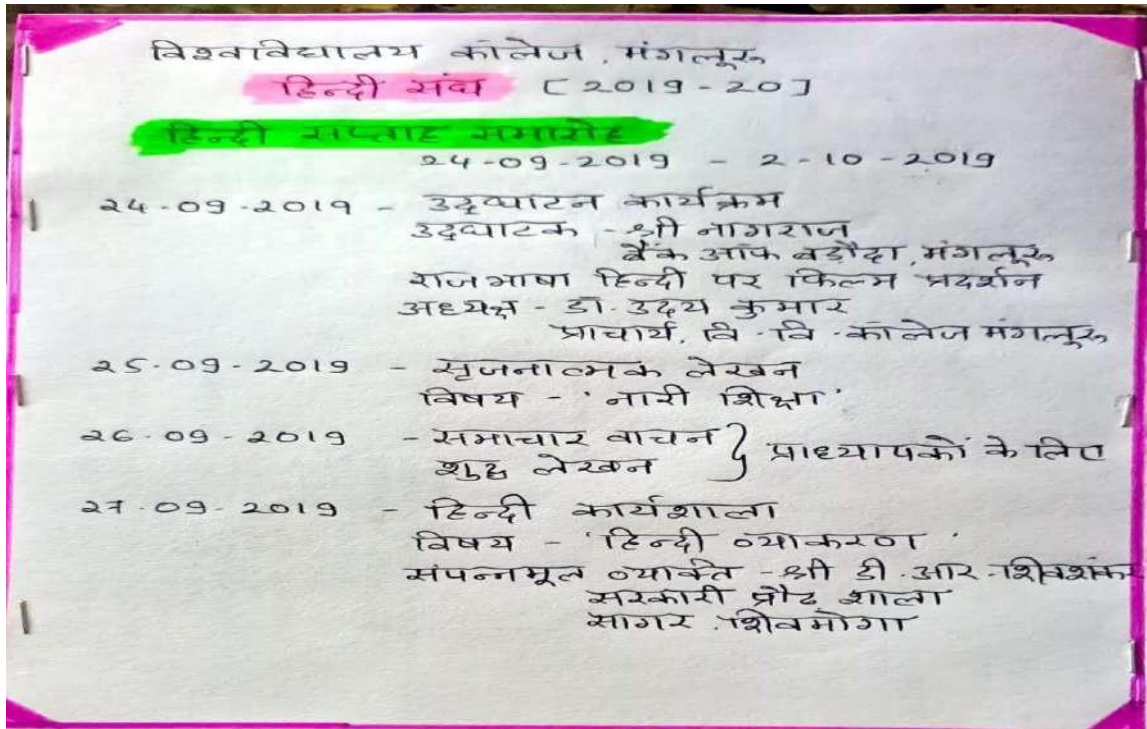 विश्वविद्यालय कॉलेज, मंगलूरु
हिन्दी संघ [2019-20]
हिन्दी सप्ताह समारोह
24-09-2019 - 2-10-2019
24-09-2019 - उद्घाटन कार्यक्रम
उद्घाटक - श्री नागराज
बैंक ऑफ बड़ौदा, मंगलूरु
राजभाषा हिन्दी पर फिल्म प्रदर्शन
अध्यक्ष - डॉ. उदय कुमार
प्राचार्य, वि.वि.कॉलेज मंगलूरु
25.09-2019 - सृजनात्मक लेखन
विषय - 'नारी शिक्षा'
26.09-2019 - समाचार वाचन } प्राध्यापकों के लिए
शुद्ध लेखन
27.09.2019 - हिन्दी कार्यशाला
विषय - 'हिन्दी व्याकरण'
संपन्नमूल व्यक्ति - श्री डी.आर.शिवशंकर
सरकारी प्रौढ शाला
सागर, शिवमोगा